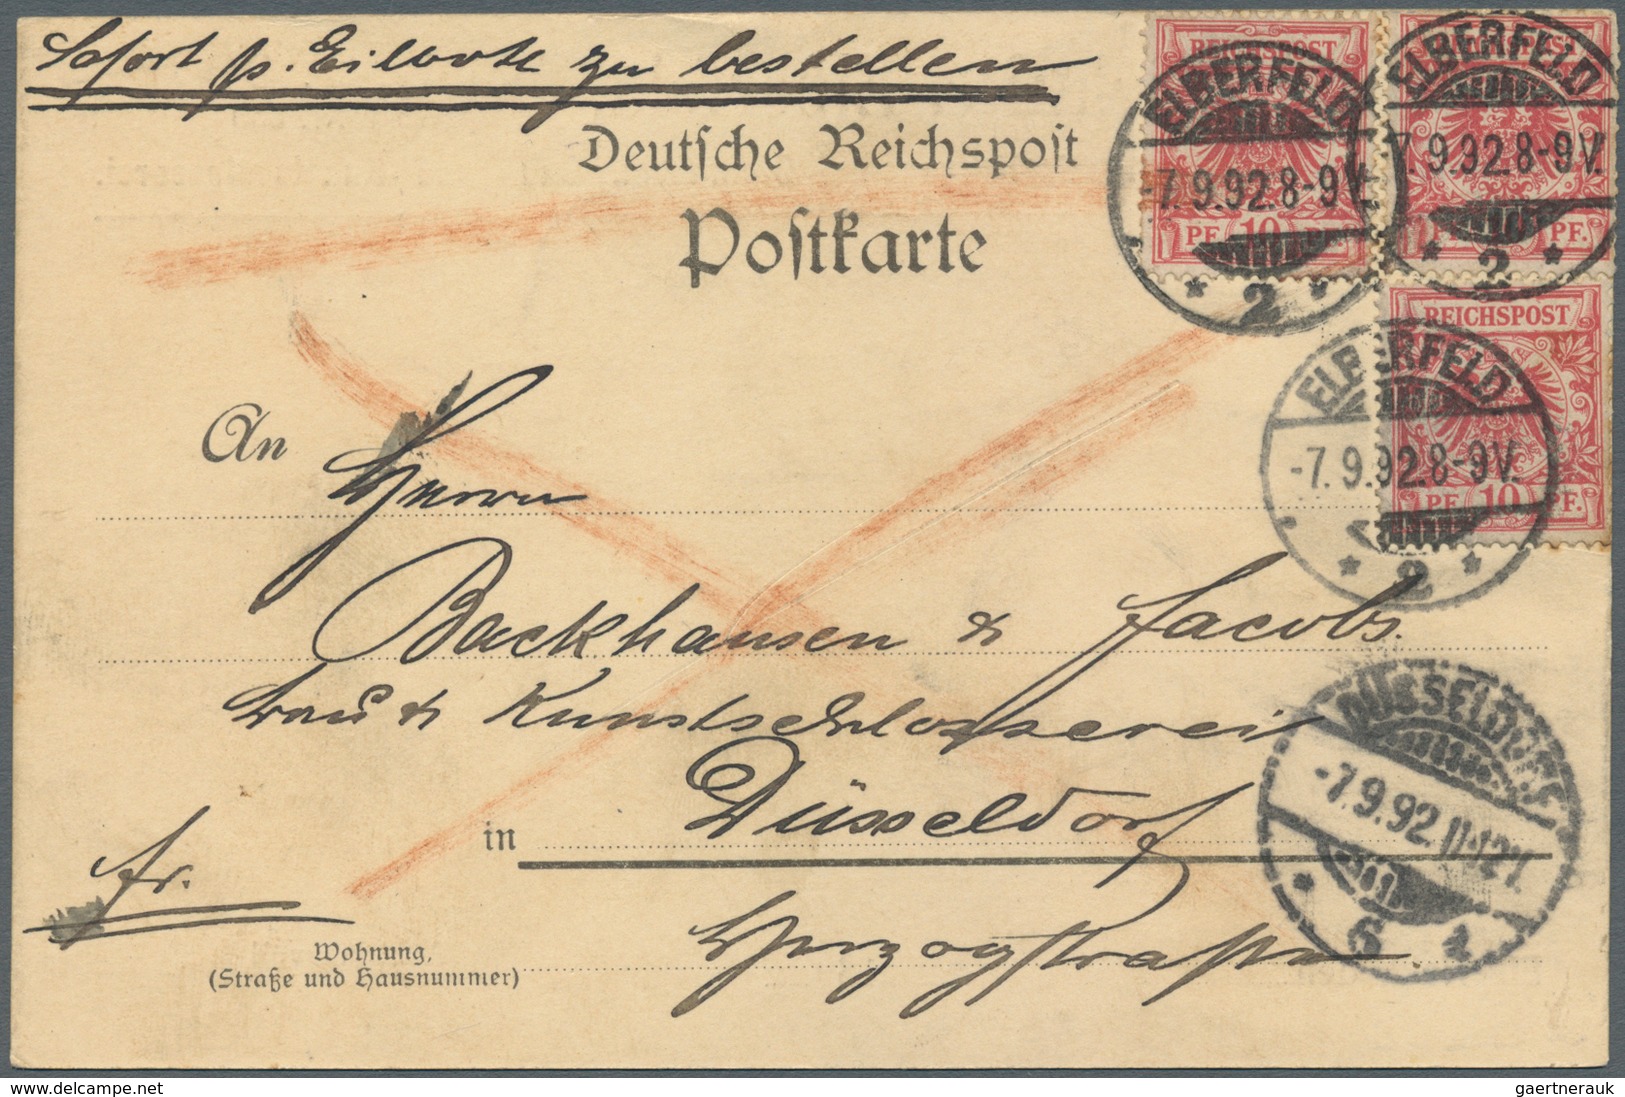 Sofort p. Eilbote zu bestellen
Deutſche Reichspoſt
Poſtkarte
REICHSPOST
PF 10 PF.
REICHSPOST
PF 10 PF.
REICHSPOST
PF 10 PF.
ELBERFELD
-7.9.92.8-9V.
* 2 *
ELBERFELD
7.9.92.8-9V.
* 2 *
ELBERFELD
-7.9.92.8-9V.
* 2 *
An
Herrn
Backhausen & Jacobs.
Bau & Kunstschlosserei
in Düsseldorf
DÜSSELDORF
-7.9.92.11-12V.
* 6 1
fr.
Wohnung,
(Straße und Hausnummer)
Herzogstrasse
delcampe.net
gaertnerauk